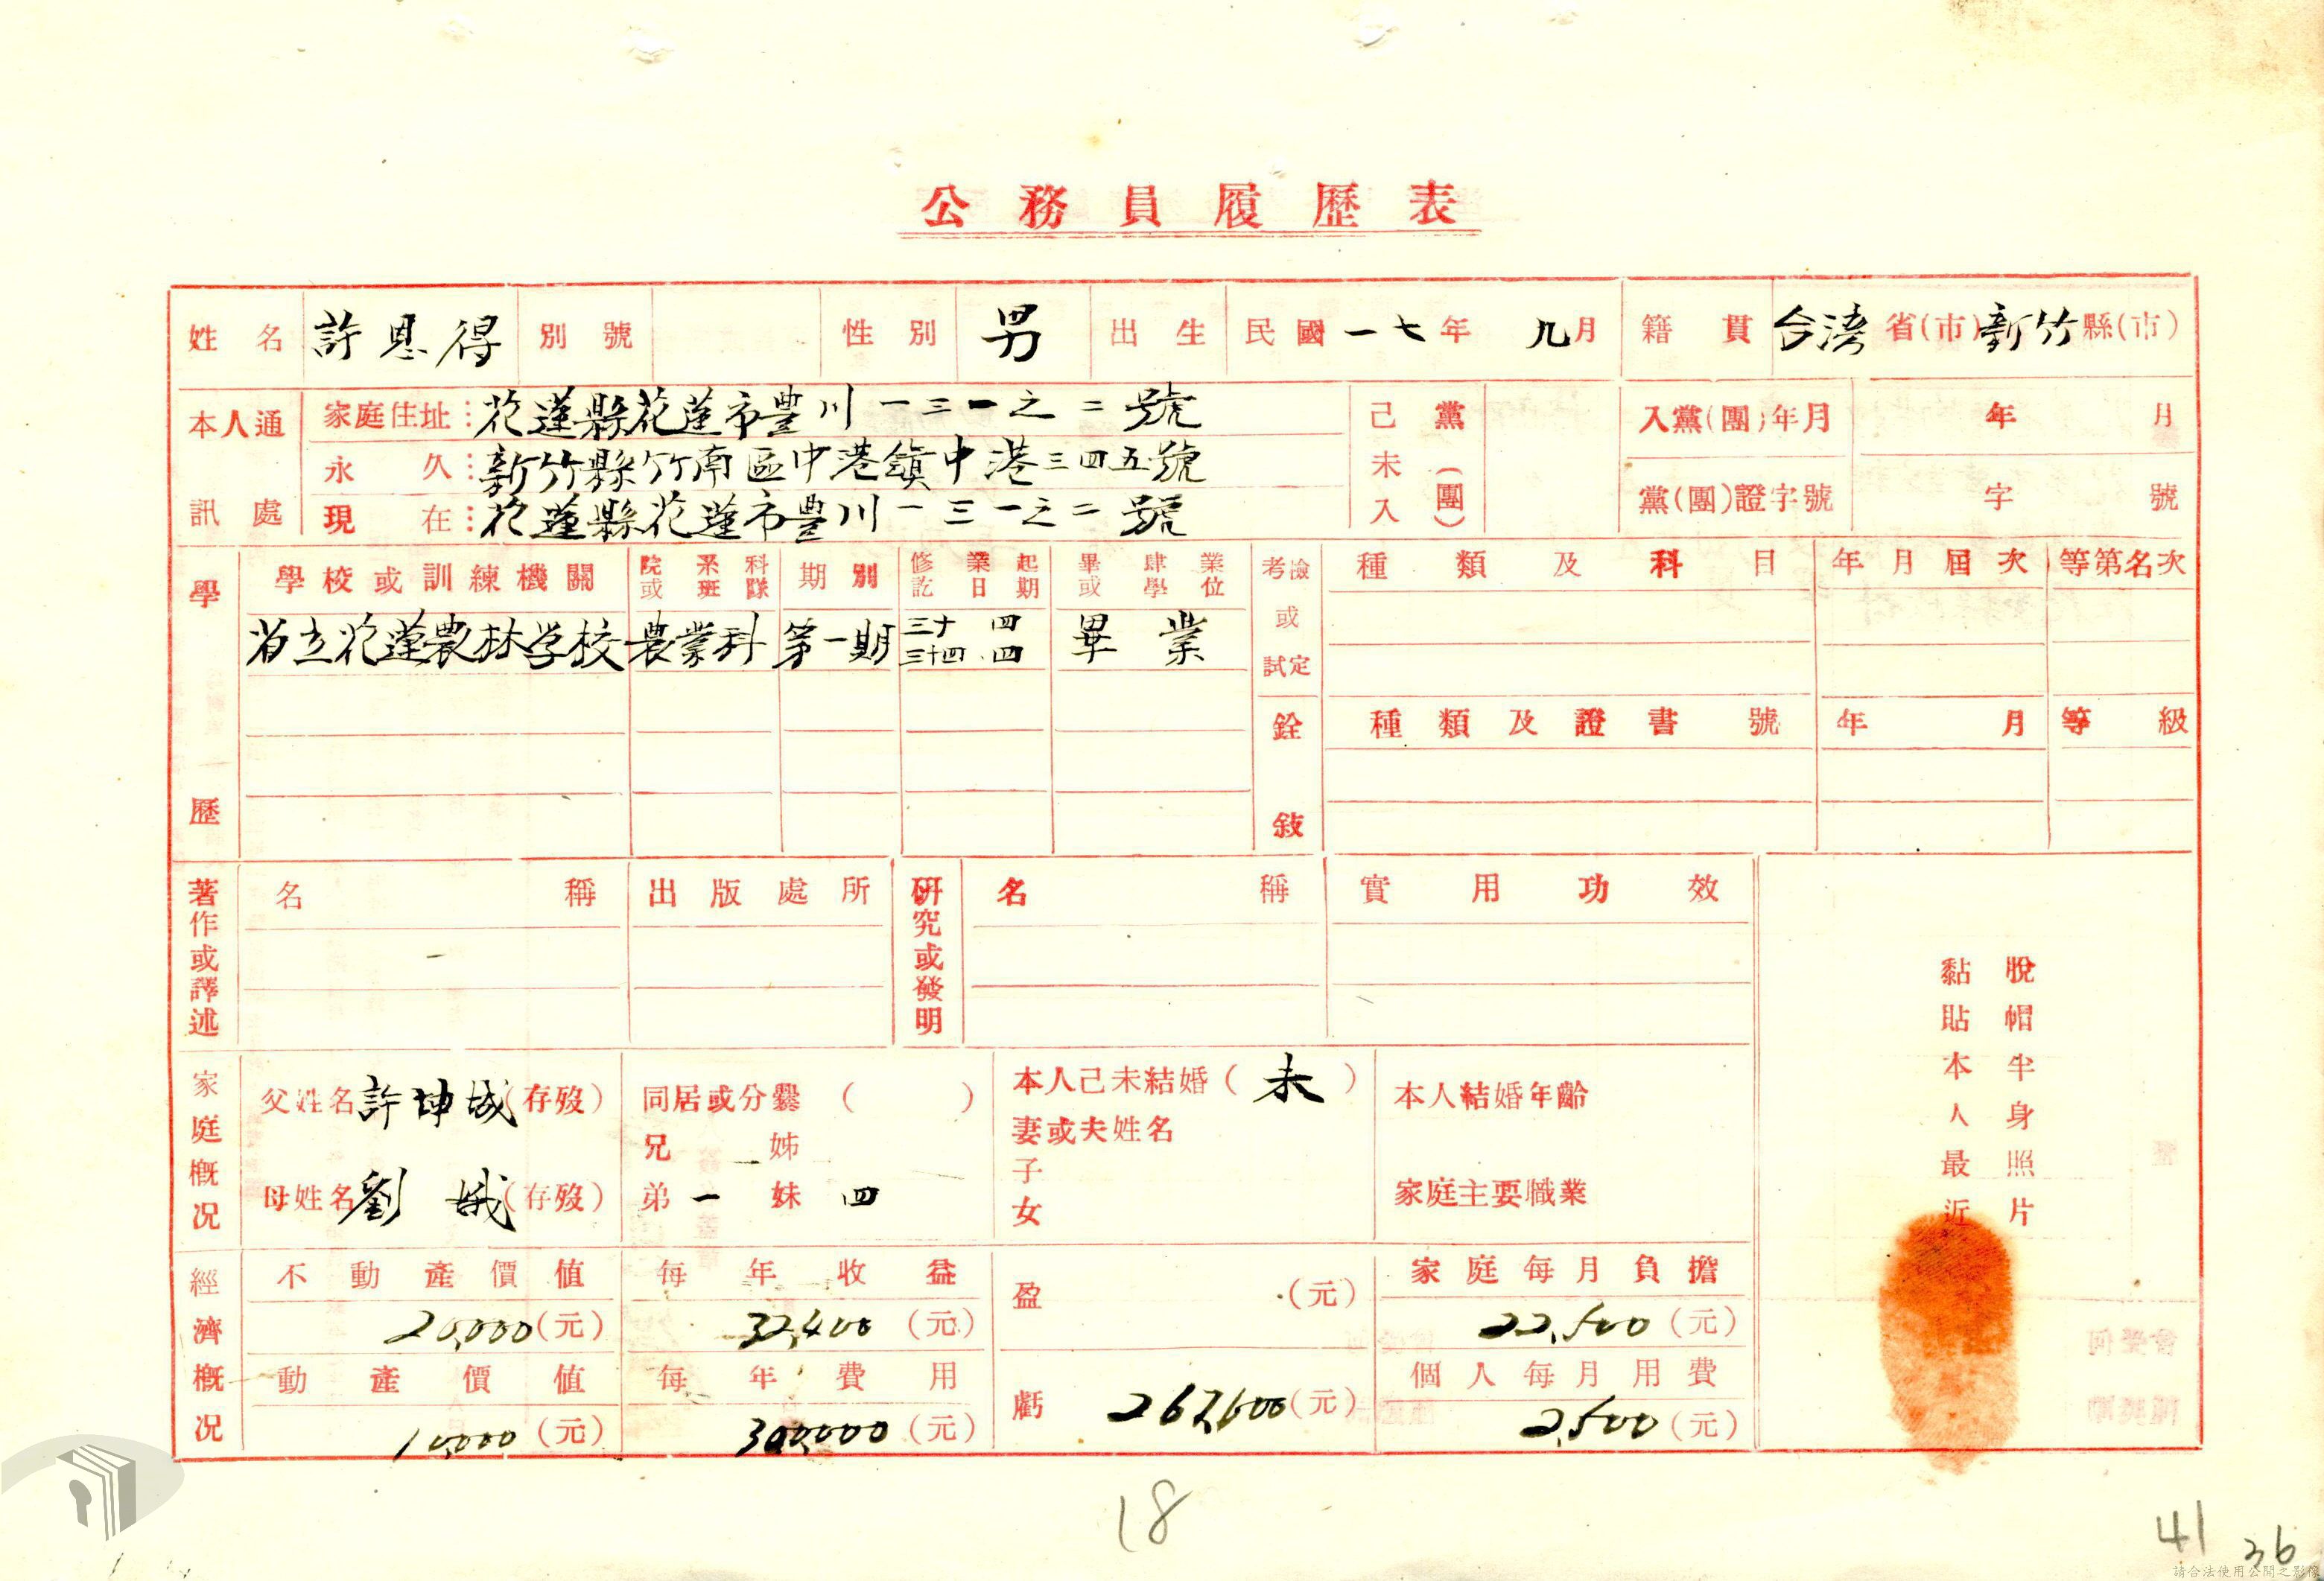 公務員履歷表
姓名 許恩得 別號 性別 男 出生 民國一七年 九月 籍貫 台湾省(市)新竹縣(市)
本人通訊處
家庭住址：花蓮縣花蓮市豐川一三一之二號
永久：新竹縣竹南區中港鎮中港三四五號
現在：花蓮縣花蓮市豐川一三一之二號
己未入黨(團)
入黨(團)年月 年 月
黨(團)證字號 字 號
學歷
學校或訓練機關 院系科或班隊 期別 修業起訖日期 畢肄業或學位
省立花蓮農林学校 農業科 第一期 三十 四 三十四 四 畢業
考試或檢定
種類及科目 年月屆次 等第名次
銓敍
種類及證書號 年月 等級
著作或譯述
名稱 出版處所
研究或發明
名稱 實用功效
家庭概况
父姓名 許坤城(存歿)
母姓名 劉娥(存歿)
同居或分爨( )
兄 姊
弟 一 妹 四
本人己未結婚(未)
妻或夫姓名
子
女
本人結婚年齡
家庭主要職業
脫帽半身照片
黏貼本人最近
經濟概况
不動產價值 每年收益 盈 (元) 家庭每月負擔
20,000(元) 32,400(元) 22,500(元)
動產價值 每年費用 虧 267,600(元) 個人每月用費
10,000(元) 300,000(元) 2,500(元)
18
41
36
請合法使用公開之影像